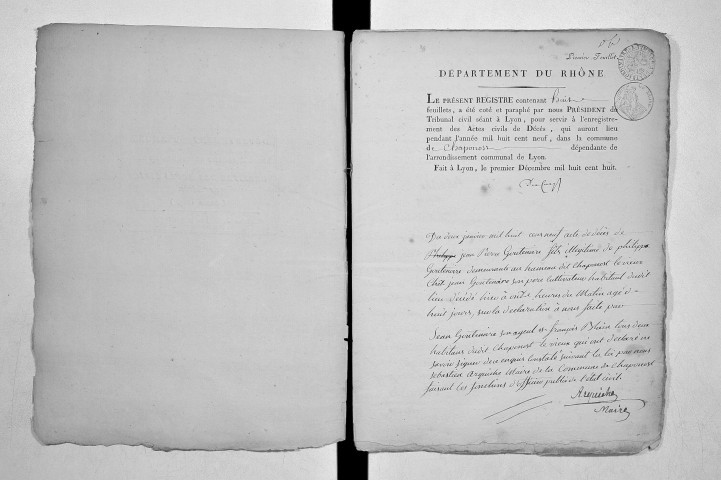 Premier Feuillet
DÉPARTEMENT DU RHÔNE
LE PRÉSENT REGISTRE contenant
feuillets, a été coté et paraphé par nous PRÉSIDENT du
Tribunal civil séant à Lyon, pour servir à l'enregistre-
ment des Actes civils de Décès, qui auront lieu
pendant l'année mil huit cent neuf, dans la commune
de Chaponost dépendante de
l'arrondissement communal de Lyon.
Fait à Lyon, le premier Décembre mil huit cent huit.
Du deux janvier mil huit cent neuf acte de décès de
jean Pierre Goutenoire fils illégitime de philippe
Goutenoire demeurante au hameau dit Chaponost le vieux
Chez jean Goutenoire son pere cultivateur habitant dudit
lieu décédé hier à onze heures du Matin agé de
huit jours, sur la declaration à nous faite par
Jean Goutenoire son ayeul et françois tous deux
habitans dudit Chaponost le vieux qui ont declaré ne
savoir signer de ce enquis Constaté suivant la loi par nous
sebastien Maire de la Commune de Chaponost
faisant les fonctions d'officier public de l'état civil.
Maire